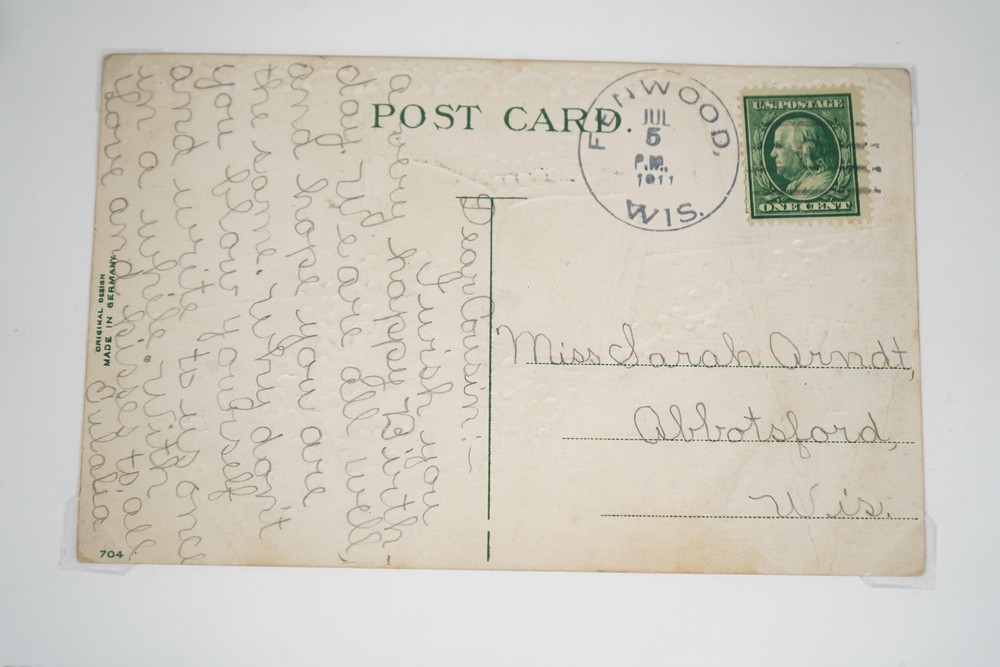 POST CARD.
FENWOOD,
JUL
5
P.M.
1911
WIS.
U.S. POSTAGE
ONE CENT
Dear Cousin:—
I wish you
a very happy Birth-
day. We are all well,
and hope you are
the same. Why don't
you yourself
and write to us once
in a while. With
love and kisses to all
Eulalia
Miss Sarah Arndt,
Abbotsford,
Wis.
ORIGINAL DESIGN
MADE IN GERMANY
704